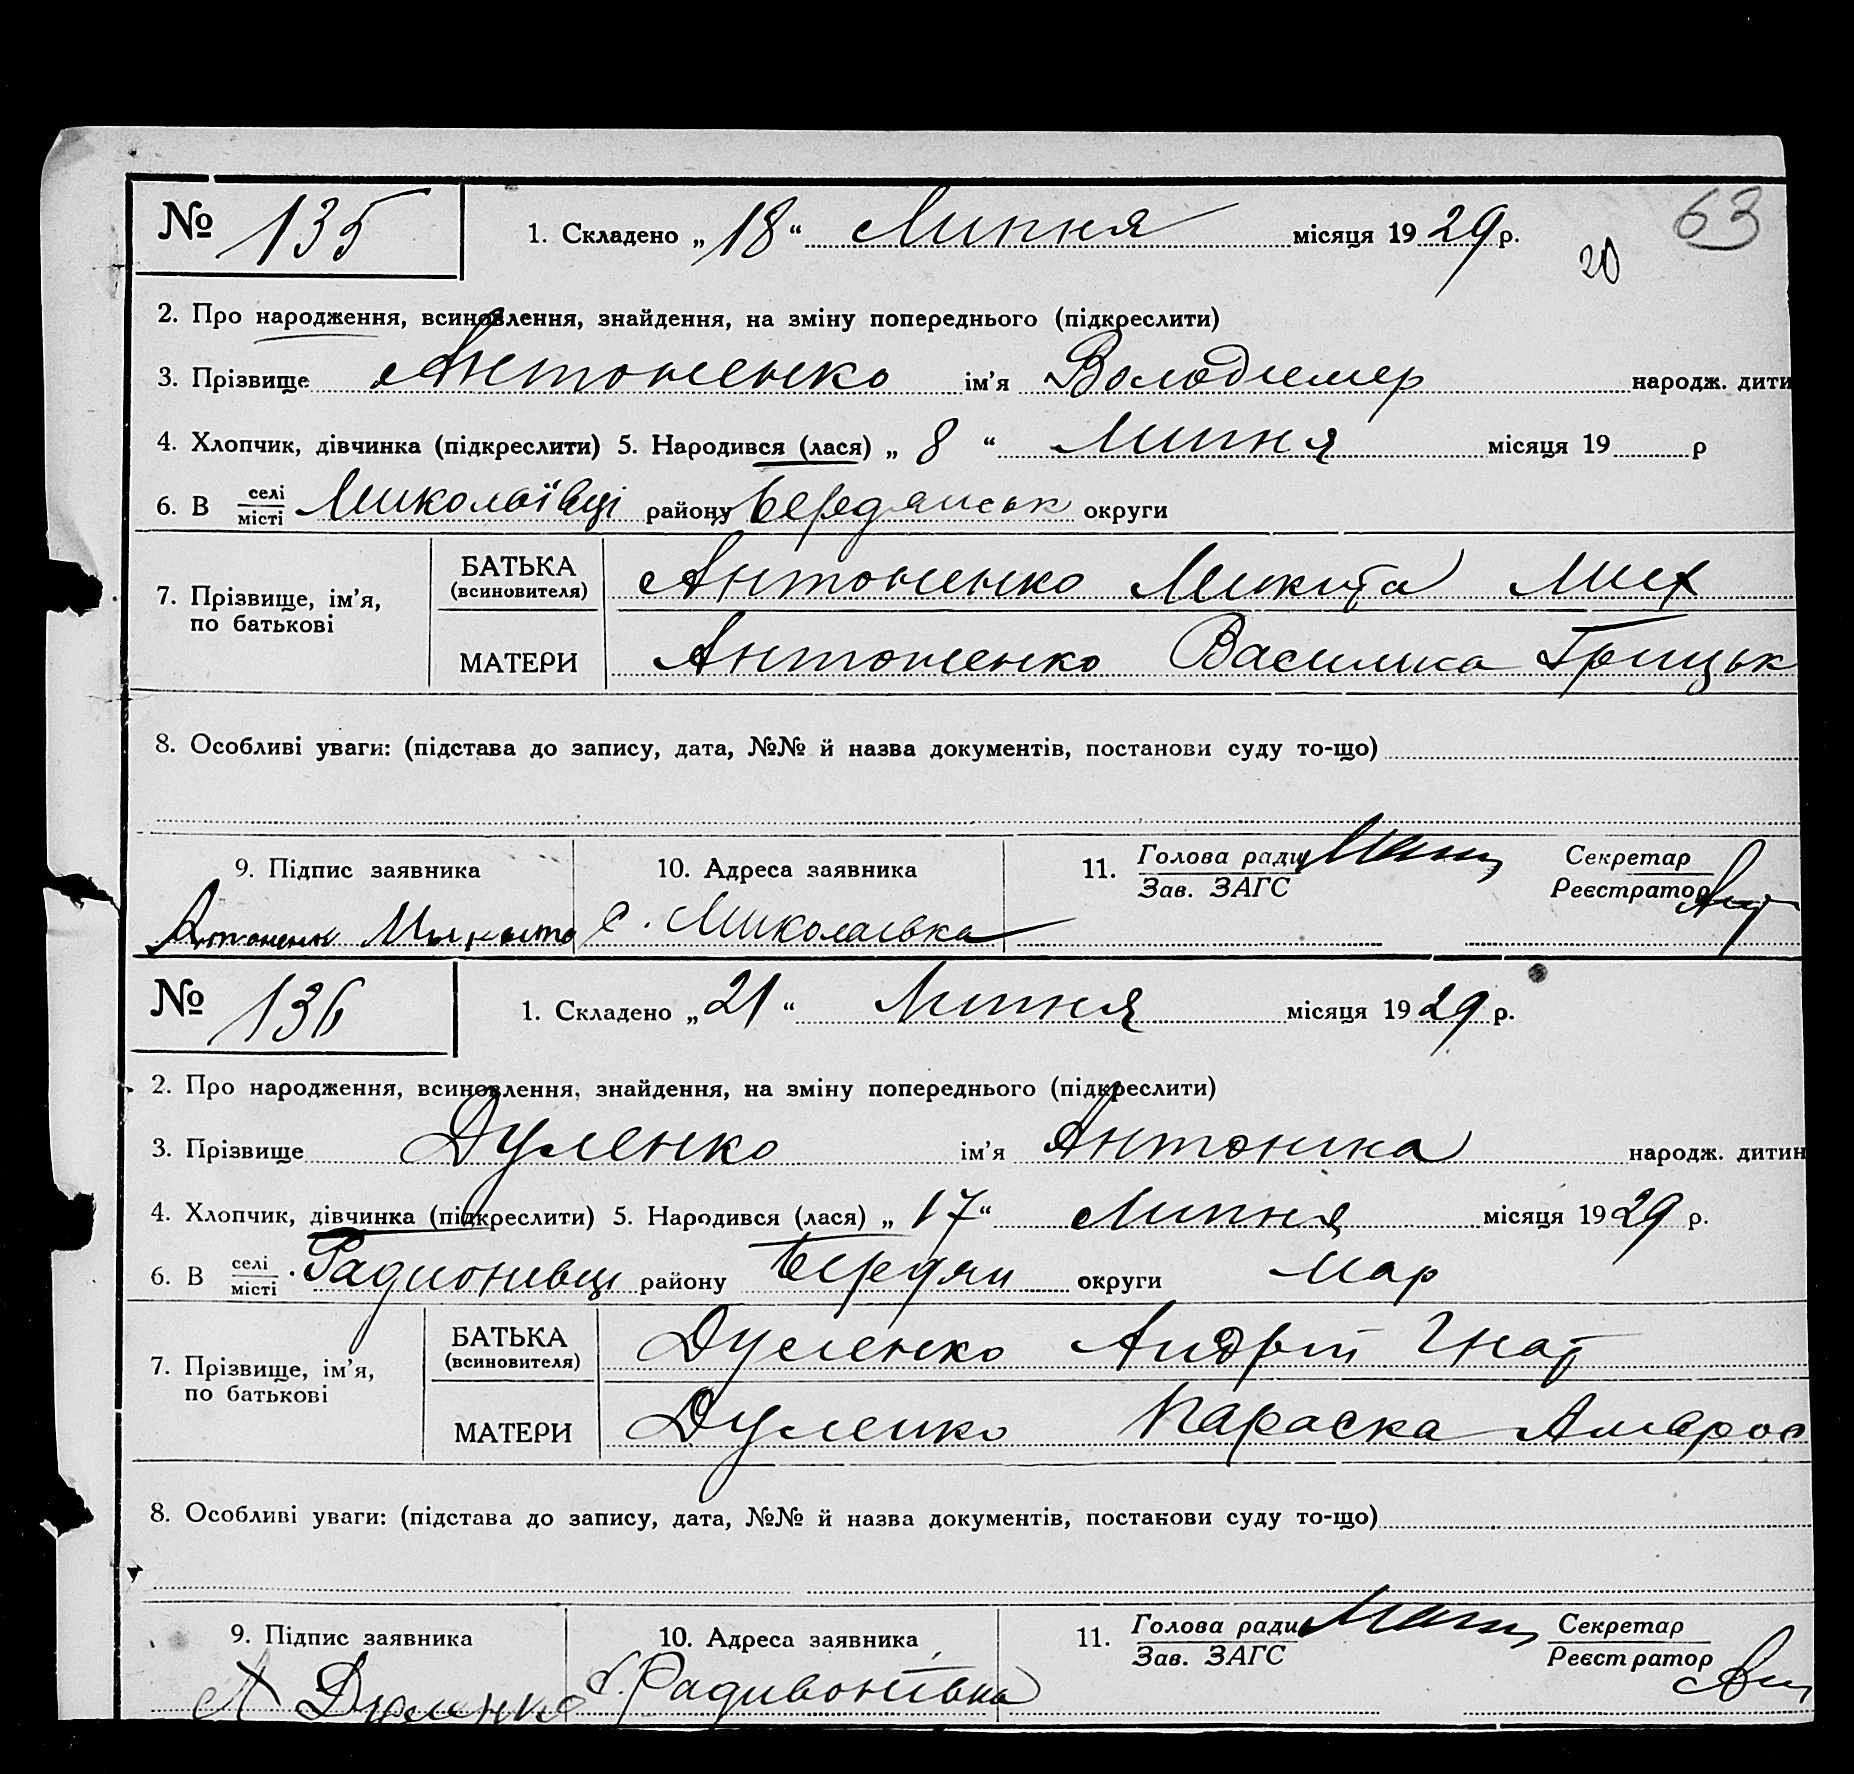 № 135 1. Складено „18“ Липня місяця 1929 р. 63
20
2. Про народження, всиновлення, знайдення, на зміну попереднього (підкреслити)
3. Прізвище Антоненко ім’я Володимер народж. дити
4. Хлопчик, дівчинка (підкреслити) 5. Народився (лася) „ 8 “ Липня місяця 19 р
6. В селі Миколаївці району Бердянськ округи
місті
7. Прізвище, ім’я, по батькові БАТЬКА (всиновителя) Антоненко Микита Мих
МАТЕРИ Антоненко Василиса Грицьк
8. Особливі уваги: (підстава до запису, дата, №№ й назва документів, постанови суду то-що)
9. Підпис заявника 10. Адреса заявника 11. Голова ради Секретар
Зав. ЗАГС Реєстратор
Антоненко Мыкыта с. Миколаевка
№ 136 1. Складено „21“ Липня місяця 1929 р.
2. Про народження, всиновлення, знайдення, на зміну попереднього (підкреслити)
3. Прізвище Дуленко ім’я Антоніна народж. дитин
4. Хлопчик, дівчинка (підкреслити) 5. Народився (лася) „ 17“ Липня місяця 1929 р.
6. В селі Радионівці району Бердян округи Мар
місті
7. Прізвище, ім’я, по батькові БАТЬКА (всиновителя) Дуленко Андрій Гнат
МАТЕРИ Дуленко Параска Амврос
8. Особливі уваги: (підстава до запису, дата, №№ й назва документів, постанови суду то-що)
9. Підпис заявника 10. Адреса заявника 11. Голова ради Секретар
Зав. ЗАГС Реєстратор
А Дуленко с. Радивонівка